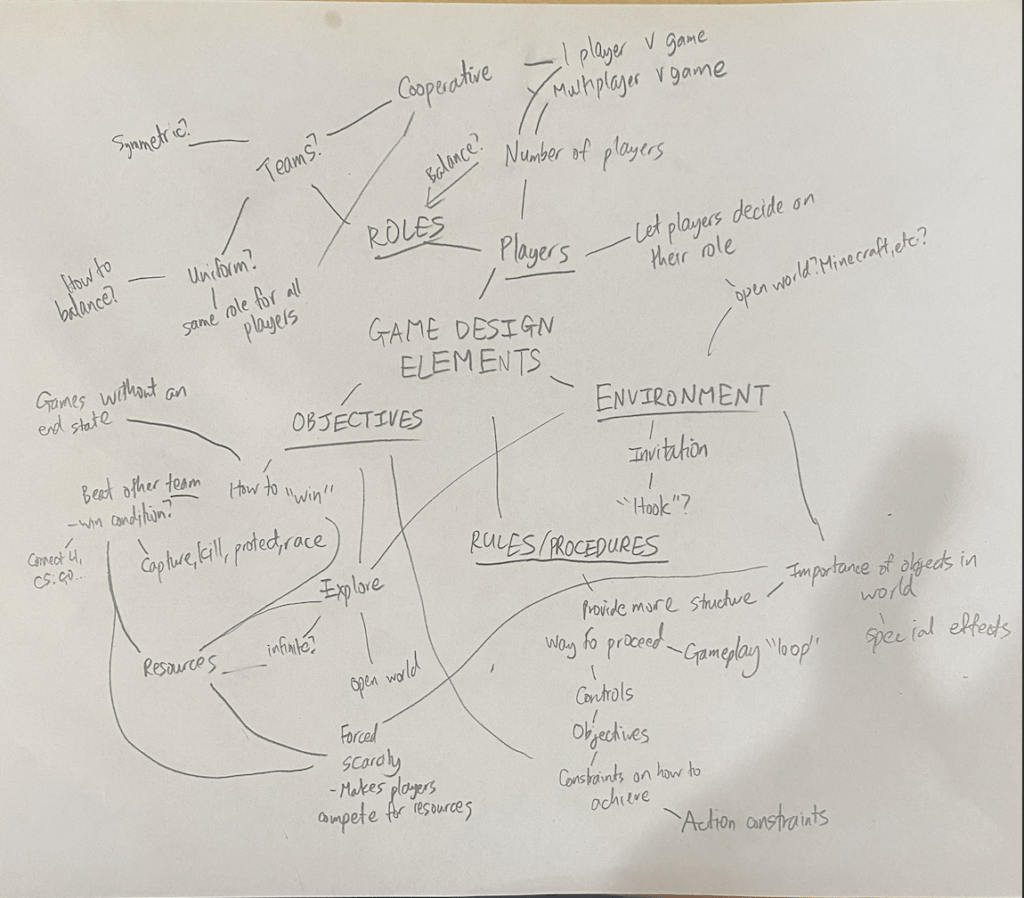 1 player v game
Multiplayer v game
Cooperative
Symmetric?
Teams?
Balance?
Number of players
ROLES
Players
Let players decide on
their role
How to
balance?
Uniform?
same role for all
players
open world? Minecraft, etc?
GAME DESIGN
ELEMENTS
ENVIRONMENT
Games without an
end state
OBJECTIVES
Invitation
"Hook"?
Beat other team
-win condition?
How to "win"
Connect 4,
CS:GO...
Capture, kill, protect, race
RULES/PROCEDURES
Explore
Provide more structure
Importance of objects in
world
special effects
way to proceed
Gameplay "loop"
Resources
infinite?
open world
Controls
Objectives
Forced
scarcity
-Makes players
compete for resources
Constraints on how to
achieve
Action constraints